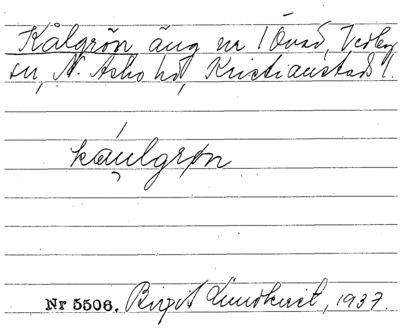 Kålgrön äng nr 1 Övad, Vedby
sn, N. Åsbo hd, Kristianstads l.
kaulgrøn
Nr 5506. Birgit Lundkvist, 1937.